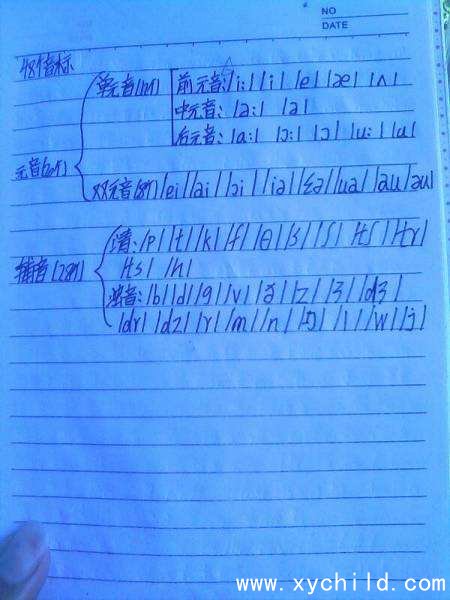 NO
DATE
48个音标
单元音(12个) 前元音:/i:/ /i/ /e/ /æ/ /ʌ/
中元音: /ə:/ /ə/
后元音: /ɑ:/ /ɔ:/ /ɔ/ /u:/ /u/
元音(20个)
双元音(8个) /ei/ /ai/ /ɔi/ /iə/ /ɛə/ /uə/ /au/ /əu/
清:/p/ /t/ /k/ /f/ /θ/ /s/ /ʃ/ /tʃ/ /tr/
辅音(28个)
/ts/ /h/
浊音: /b/ /d/ /g/ /v/ /ð/ /z/ /ʒ/ /dʒ/
/dr/ /dz/ /r/ /m/ /n/ /ŋ/ /l/ /w/ /j/
www.xychild.com